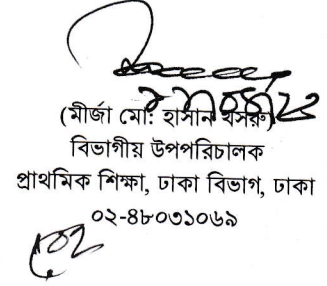 (মীর্জা মো: হাসান খসরু)
বিভাগীয় উপপরিচালক
প্রাথমিক শিক্ষা, ঢাকা বিভাগ, ঢাকা
০২-৪৮০৩১০৬৯